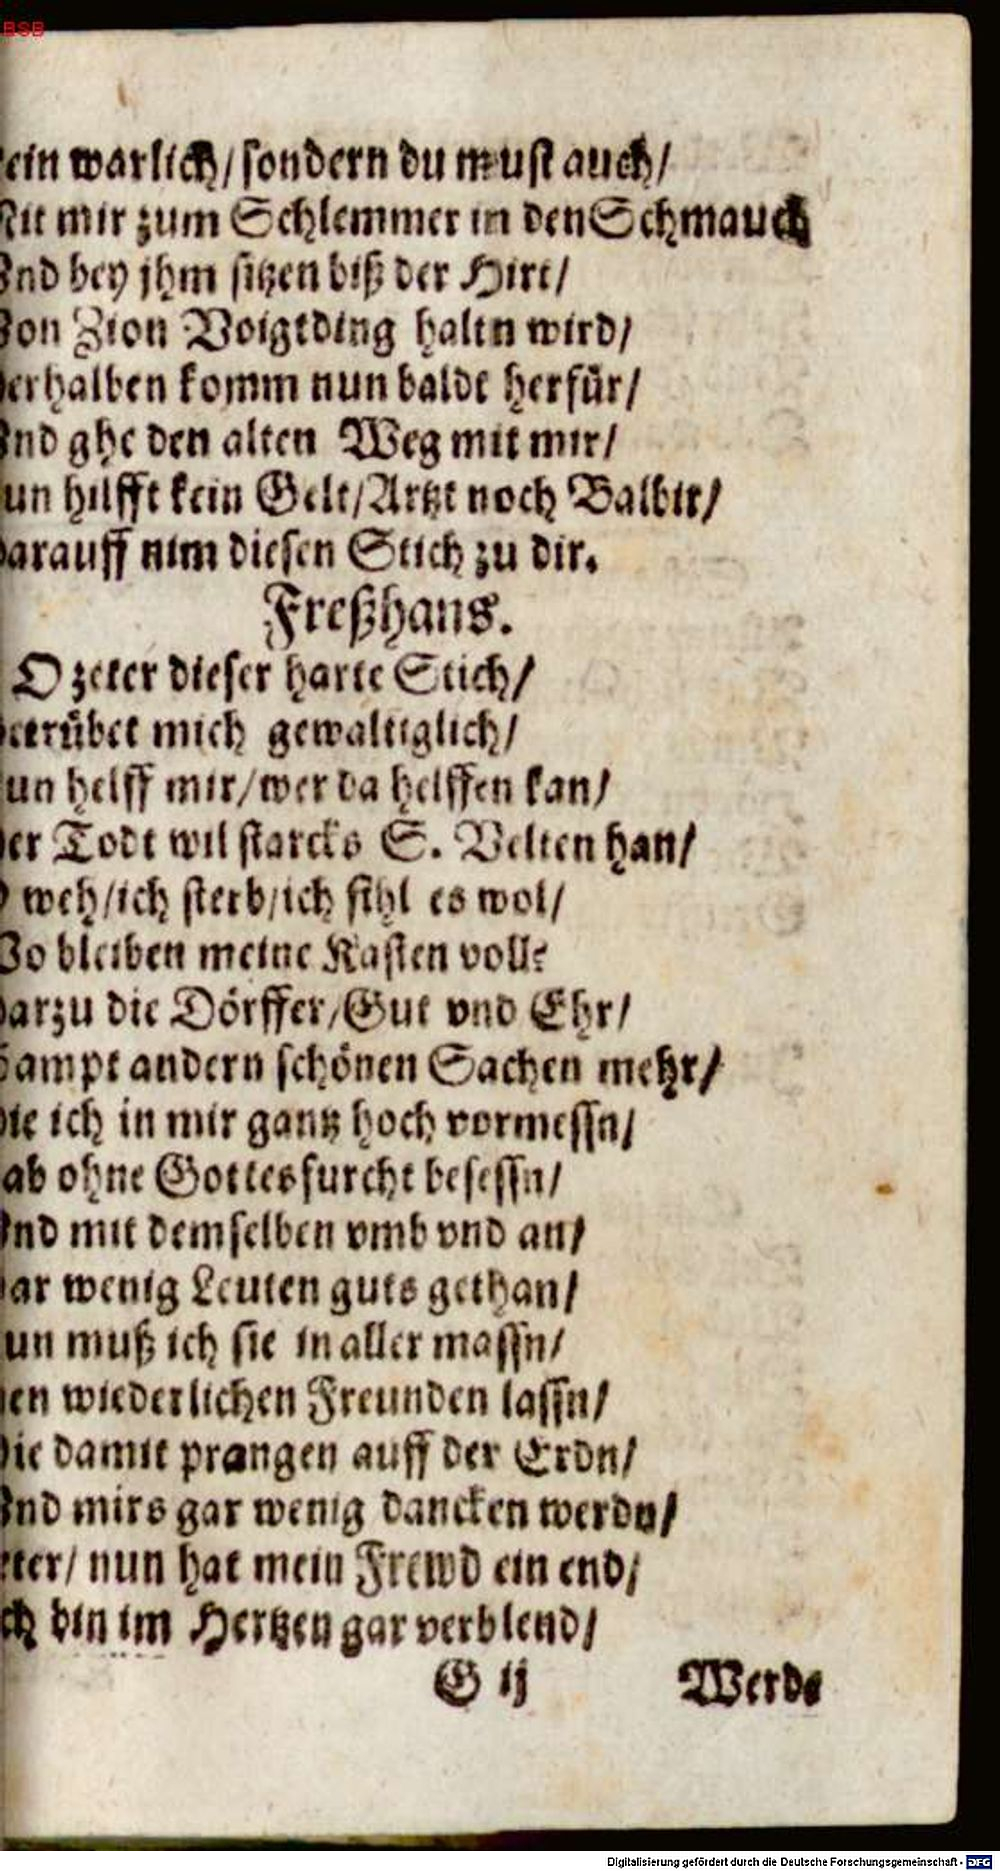 BSB
ein warlich/ sondern du must auch/
Mit mir zum Schlemmer in den Schmauch
Vnd bey jhm sitzen biß der Hirt/
Von Zion Voigtding haltn wird/
erhalben komm nun baldt herfür/
Vnd ghe den alten Weg mit mir/
un hilfft kein Gelt/ Artzt noch Balbir/
arauff nim diesen Stich zu dir.
Freßhans.
O zeter dieser harte Stich/
etrübet mich gewaltiglich/
un helff mir/ wer da helffen kan/
er Todt wil starcks S. Velten han/
O weh/ ich sterb/ ich fihl es wol/
Wo bleiben meine Kasten voll?
arzu die Dörffer/ Gut vnd Ehr/
Sampt andern schönen Sachen mehr/
Die ich in mir gantz hoch vormessn/
ab ohne Gottesfurcht besessn/
Vnd mit demselben vmb vnd an/
ar wenig Leuten guts gethan/
un muß ich sie in aller massn/
en wiederlichen Freunden lassn/
Die damit prangen auff der Erdn/
Vnd mirs gar wenig dancken werdn/
eter/ nun hat mein Frewd ein end/
ch bin im Hertzen gar verblend/
G ij Werde
Digitalisierung gefördert durch die Deutsche Forschungsgemeinschaft - DFG